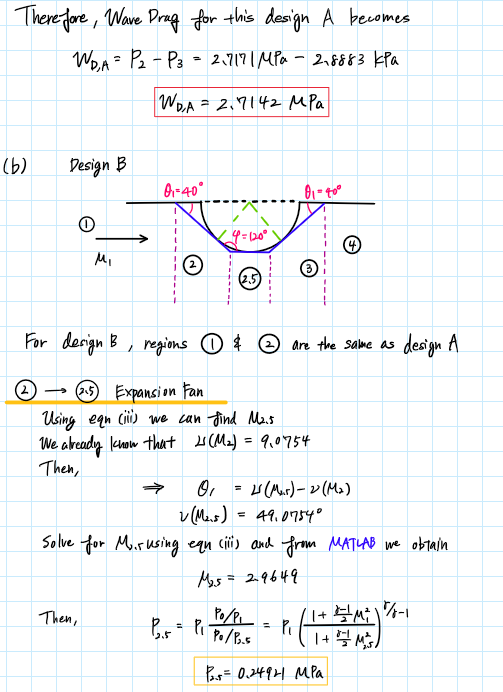 Therefore, Wave Drag for this design A becomes
W_{D,A} = P_2 - P_3 = 2.7171 MPa - 2.8883 kPa
W_{D,A} = 2.7142 MPa
(b) Design B
θ_1=40° θ_1=40°
① φ=120° ④
M_1 ② ③
2.5
For design B, regions ① & ② are the same as design A
② → 2.5 Expansion Fan
Using eqn (iii) we can find M_{2.5}
We already know that ν(M_2) = 9.0754
Then,
⇒ θ_1 = ν(M_{2.5}) - ν(M_2)
ν(M_{2.5}) = 49.0754°
Solve for M_{2.5} using eqn (iii) and from MATLAB we obtain
M_{2.5} = 2.9649
Then, P_{2.5} = P_1 \frac{P_0/P_1}{P_0/P_{2.5}} = P_1 \left( \frac{1 + \frac{γ-1}{2} M_1^2}{1 + \frac{γ-1}{2} M_{2.5}^2} \right)^{γ/γ-1}
P_{2.5} = 0.24921 MPa